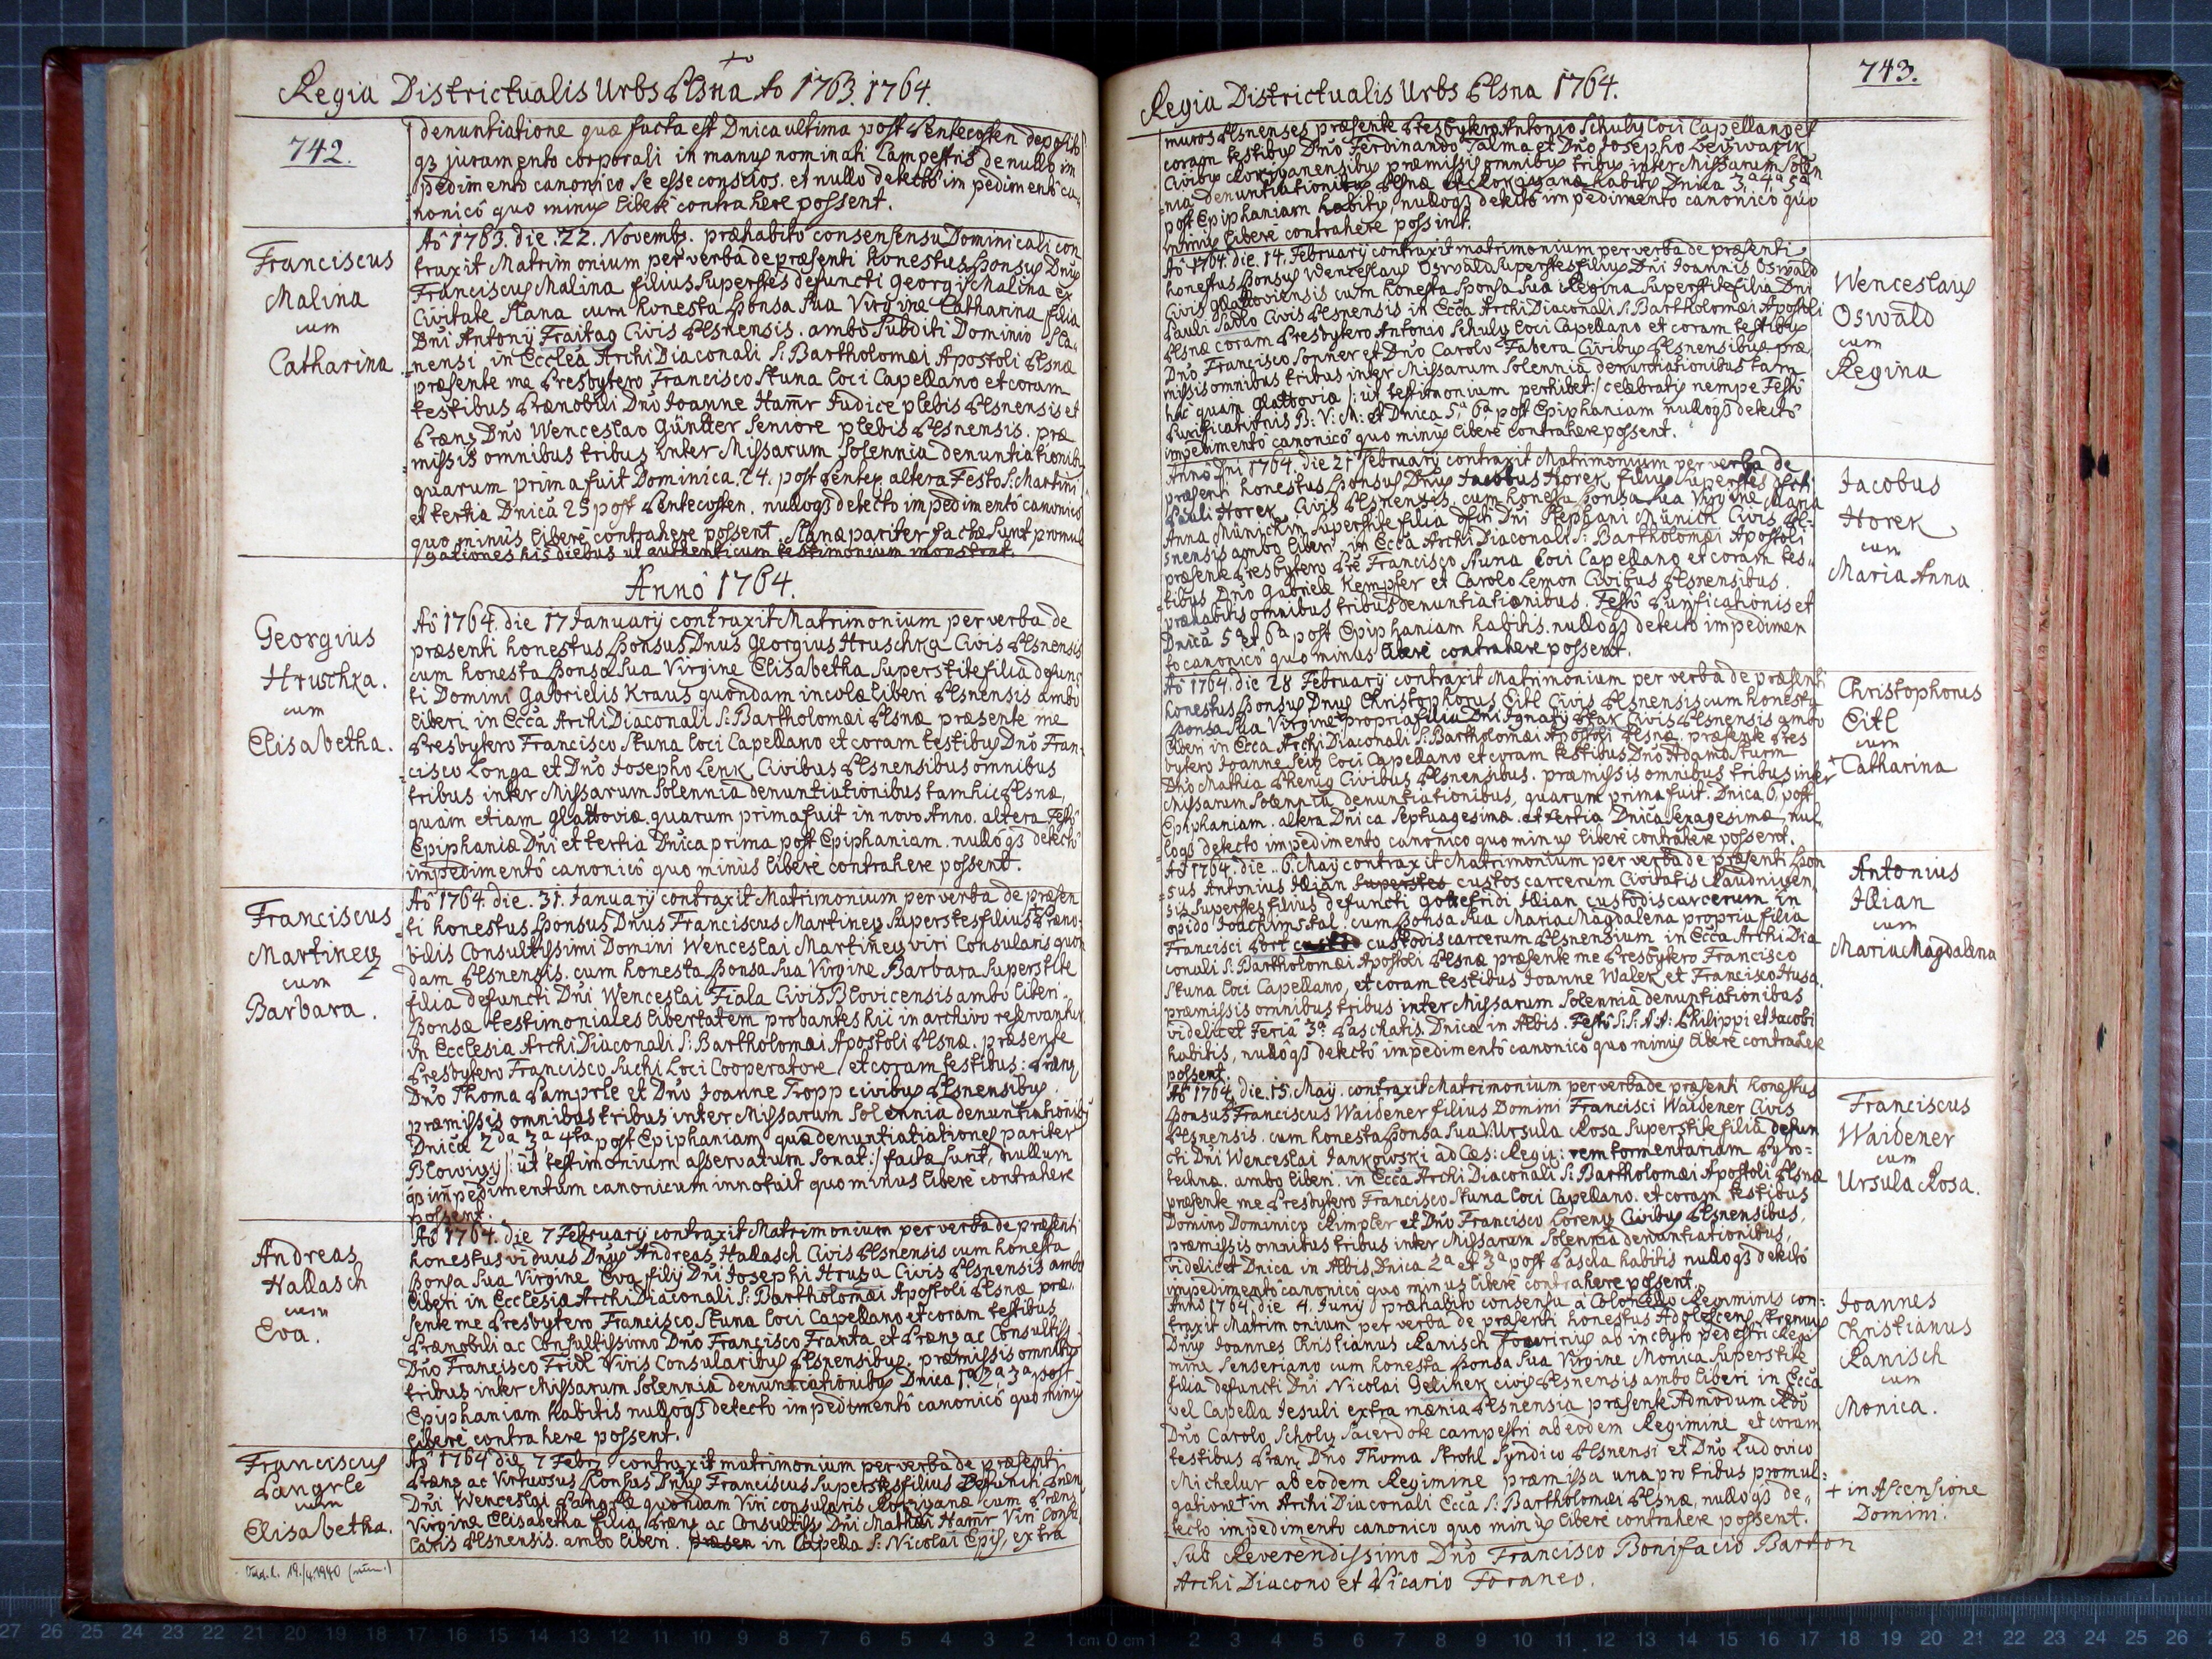 Regia Districtualis Urbs Plsna Ao 1763. 1764.
742.
denuntiatione quæ facta est Dnica ultima post Pentecosten deposito
qȝ juramento corporali in manus nominati Campestris de nullo im
pedimento canonico se esse conscios. et nullo detectô impedimentô ca-
nonicô quo minus liberè contrahere possent.
Franciscus
Malina
cum
Catharina.
Aô 1763. die 22. Novembr. præhabitô consensu Dominicali con
traxit Matrimonium per verba de præsenti honestus Sponsus Dnus
Franciscus Malina filius Superstes defuncti Georgij Malina ex
Civitate Slana cum honesta Sponsa Sua Virgine Catharina filia
Dni Antonij Fraitag Civis Plsnensis. ambo Subditi Dominio Sla-
nensi in Ecclea ArchiDiaconali S: Bartholomæi Apostoli Plsnæ
præsente me Presbytero Francisco Stuna Loci Capellano et coram
testibus Prænobili Dnô Joanne Hamr Judice plebis Plsnensis et
Præn. Dnô Wenceslao Güntter Seniore plebis Plsnensis. præ
missis omnibus tribus inter Missarum Solennia denuntiationibus
quarum prima fuit Dominica 24. post Pentec. altera Festo S: Martini
et tertia Dnicâ 25 post Pentecosten. nulloqȝ detecto impedimentô canonico
quo minus liberè contrahere possent. Slanæ pariter factæ Sunt promul
gationes his diebus ut authenticum testimonium monstrat.
Annô 1764.
Georgius
Hruschka.
cum
Elisabetha.
Aô 1764. die 17 Januarij contraxit Matrimonium per verba de
præsenti honestus Sponsus Dnus Georgius Hruschka Civis Plsnensis
cum honesta Sponsa Sua Virgine Elisabetha Superstite filia defunc
ti Domini Gabrielis Kraus quondam incolæ liberi Plsnensis ambo
liberi in Ecca ArchiDiaconali S: Bartholomæi Plsnæ præsente me
Presbytero Francisco Stuna Loci Capellano et coram testibus Dnô Fran-
cisco Longa et Dnô Josepho Lenk Civibus Plsnensibus omnibus
tribus inter Missarum Solennia denuntiationibus tam hic Plsnæ,
quàm etiam Glattoviæ. quarum prima fuit in novo Anno. altera Festô
Epiphaniæ Dni et tertia Dnica prima post Epiphaniam. nullôqȝ detectô
impedimentô canonicô quo minus liberè contrahere possent.
Franciscus
Martinetz
cum
Barbara.
Aô 1764. die 31. Januarij contraxit Matrimonium per verba de præsen
ti honestus Sponsus Dnus Franciscus Martinetz Superstes filius Præno-
bilis Consultissimi Domini Wenceslai Martinetz viri Consularis quon
dam Plsnensis. cum honesta Sponsa Sua Virgine Barbara Superstite
filia defuncti Dni Wenceslai Fiala Civis Blovicensis ambo liberi.
Sponsæ testimoniales libertatem probantes hic in archivo reservantur.
in Ecclesia ArchiDiaconali S: Bartholomæi Apostoli Plsnæ. præsente
Presbytero Francisco Suchi Loci Cooperatore, et coram testibus: Præn.
Dnô Thoma Lamprle et Dnô Joanne Tropp civibus Plsnensibus.
præmissis omnibus tribus inter Missarum Solennia denuntiationibus
Dnica 2da 3a 4ta post Epiphaniam quæ denuntiationes pariter
Blowizij /: ut testimonium asservatum Sonat :/ factæ Sunt, nullum
qȝ impedimentum canonicum innotuit quo minus liberè contrahere
possent.
Andreas
Hallasch
cum
Eva.
Aô 1764. die 7 Februarij contraxit Matrimonium per verba de præsenti
honestus viduus Dnus Andreas Hallasch Civis Plsnensis cum honesta
Sponsa Sua Virgine Eva filij Dni Josephi Hruza Civis Plsnensis ambo
liberi in Ecclesia ArchiDiaconali S: Bartholomæi Apostoli Plsnæ præ-
sente me Presbytero Francisco Stuna Loci Capellano et coram testibus
Prænobili ac Consultissimo Dnô Francisco Franta et Præn. ac Consultiss.
Dnô Francisco Fridl Viris Consularibus Plsnensibus. præmissis omnibus
tribus inter Missarum Solennia denuntiationibus Dnica 1a 2a 3a post
Epiphaniam habitis nulloqȝ detecto impedimentô canonicô quo minus
liberè contrahere possent.
Franciscus
Langrle
cum
Elisabetha.
Aô 1764 die 7 Febr. contraxit matrimonium per verba de præsenti
Præn. ac Virtuosus Sponsus Dnus Franciscus Superstes filius Defuncti Præn.
Dni Wenceslai Langrle quondam Viri consularis Rokyzanæ cum Præn.
Virgine Elisabetha filia Præn. ac Consultiss. Dni Mathæi Hamr Viri Consu
laris Plsnensis. ambo liberi. præsen in Capella S: Nicolai Epis. extra
19./4.1940
Regia Districtualis Urbs Plsna 1764.
743.
muros Plsnenses præsente Presbytero Antonio Schuly Loci Capellano et
coram testibus Dnô Ferdinando Talma et Dnô Josepho
Civibus Rokyzanensibus præmissis omnibus tribus inter Missarum Solen
nia denuntiationibus Plsnæ et Rokyzanæ habitis Dnica 3a 4a 5a
post Epiphaniam habitis, nulloqȝ detectô impedimento canonicô quo
minus liberè contrahere possint.
Wenceslaus
Oswald
cum
Regina
Aô 1764. die 14. Februarij contraxit matrimonium per verba de præsenti
honestus Sponsus Wenzeslaus Oswald Superstes filius Dni Joannis Oswald
Civis Glattoviensis cum honesta Sponsa Sua Regina Superstite filia Dni
Pauli Sablo Civis Plsnensis in Ecca ArchiDiaconali S: Bartholomæi Apostoli
Plsnæ coram Presbytero Antonio Schuly Loci Capellano et coram testibus
Dnô Francisco Sonner et Dnô Carolo Fabera Civibus Plsnensibus præ-
missis omnibus tribus inter Missarum Solennia denuntiationibus tam
hic quam Glattovia /: ut testimonium perhibet :/ celebratis nempe Festô
Purificationis B: V: M: et Dnica 5a 6a post Epiphaniam nulloqȝ detectô
impedimentô canonicô quo minus liberè contrahere possent.
Jacobus
Horek
cum
Maria Anna
Anno Dni 1764. die 21 Februarij contraxit Matrimonium per verba de
præsenti honestus Sponsus Dnus Jacobus Horek filius Superstes dfcti
Pauli Horek Civis Plsnensis. cum honesta Sponsa Sua Virgine Maria
Anna Münichin Superstite filia dfcti Dni Stephani Münich Civis Pl-
snensis ambo liberi in Ecca ArchiDiaconali S: Bartholomæi Apostoli
præsente Presbytero Pre Francisco Stuna Loci Capellano et coram tes-
tibus Dnô Gabriele Kempfer et Carolo Lemon Civibus Plsnensibus.
præhabitis omnibus tribus denuntiationibus. Festô Purificationis et
Dnica 5a et 6a post Epiphaniam habitis. nulloqȝ detecto impedimen
to canonicô quo minus liberè contrahere possent.
Christophorus
Eitl
cum
Catharina
Aô 1764. die 28 Februarij contraxit Matrimonium per verba de præsenti
honestus Sponsus Dnus Christophorus Eitl Civis Plsnensis cum honesta
Sponsa Sua Virgine + propria filia Dni Ignatij Civis Plsnensis ambo
liberi in Ecca ArchiDiaconali S: Bartholomæi Apostoli Plsnæ. præsente Pres
bytero Joanne Seitz Loci Capellano et coram testibus Dnô Adamo Sturm
Dnô Mathia Phenig Civibus Plsnensibus. præmissis omnibus tribus inter
Missarum Solennia denuntiationibus, quarum prima fuit. Dnica 6. post
Epiphaniam. altera Dnica Septuagesimæ. et tertia Dnica Sexagesimæ, nul-
loqȝ detecto impedimento canonico quo minus liberè contrahere possent.
Antonius
Illian
cum
Maria Magdalena
Aô 1764. die 6. Maij contraxit Matrimonium per verba de præsenti Spon
sus Antonius Illian superstes custos carcerum Civitatis Raudnicen
sis Superstes filius defuncti Gottefridi Illian custodis carcerum in
opido Joachimstal. cum Sponsa Sua Maria Magdalena propria filia
Francisci custodis carcerum Plsnensium in Ecca ArchiDia
conali S: Bartholomæi Apostoli Plsnæ præsente me Presbytero Francisco
Stuna Loci Capellano, et coram testibus Joanne Walek et Francisco Husa.
præmissis omnibus tribus inter Missarum Solennia denuntiationibus
videlicet Feria 3a Paschatis. Dnica in Albis. Festô S.S: A.A: Philippi et Jacobi
habitis, nullôqȝ detectô impedimentô canonicô quo minus liberè contrahere
possent.
Franciscus
Waidener
cum
Ursula Rosa.
Aô 1764. die 15. Maij. contraxit Matrimonium per verba de præsenti honestus
Sponsus Franciscus Waidener filius Domini Francisci Waidener Civis
Plsnensis. cum honesta Sponsa Sua V. Ursula Rosa Superstite filia defun
cti Dni Wenceslai Jankowski ad Cæs: Regiy: rem tormentariam Pyro-
technæ. ambo liberi. in Ecca ArchiDiaconali S: Bartholomæi Apostoli Plsnæ
præsente me Presbytero Francisco Stuna Loci Capellano. et coram testibus
Domino Dominico Rimpler et Dnô Francisco Lorenz Civibus Plsnensibus,
præmissis omnibus tribus inter Missarum Solennia denuntiationibus,
videlicet Dnica in Albis, Dnica 2a et 3a post Pascha habitis nulloqȝ detectô
impedimentô canonicô quo minus liberè contrahere possent.
Joannes
Christianus
Ranisch
cum
Monica.
Anno 1764. die 4. Junij præhabito consensu à Colonello Regiminis con-
traxit Matrimonium per verba de præsenti honestus Adolescens strenuus
Dnus Joannes Christianus Ranisch Fouririis ab inclyto pedestri Regi
mine Senseriano cum honesta Sponsa Sua Virgine Monica Superstite
filia defuncti Dni Nicolai Gelinek civis Plsnensis ambo liberi in Ecca
vel Capella Jesuli extra mænia Plsnensia præsente Admodum Rdo
Dnô Carolo Scholz Sacerdote campestri ab eodem Regimine et coram
testibus Præn. Dnô Thoma Strohl Syndico Plsnensi et Dnô Ludovico
Michelur ab eodem Regimine præmissa una pro tribus promul-
gatione + in ArchiDiaconali Ecca S: Bartholomæi Plsnæ, nulloqȝ de-
tecto impedimento canonico quo minus liberè contrahere possent.
+ in Ascensione
Domini.
Sub Reverendissimo Dnô Francisco Bonifacio Barton
ArchiDiacono et Vicario Foraneo.
27 26 25 24 23 22 21 20 19 18 17 16 15 14 13 12 11 10 9 8 7 6 5 4 3 2 1 cm 0 cm 1 2 3 4 5 6 7 8 9 10 11 12 13 14 15 16 17 18 19 20 21 22 23 24 25 26